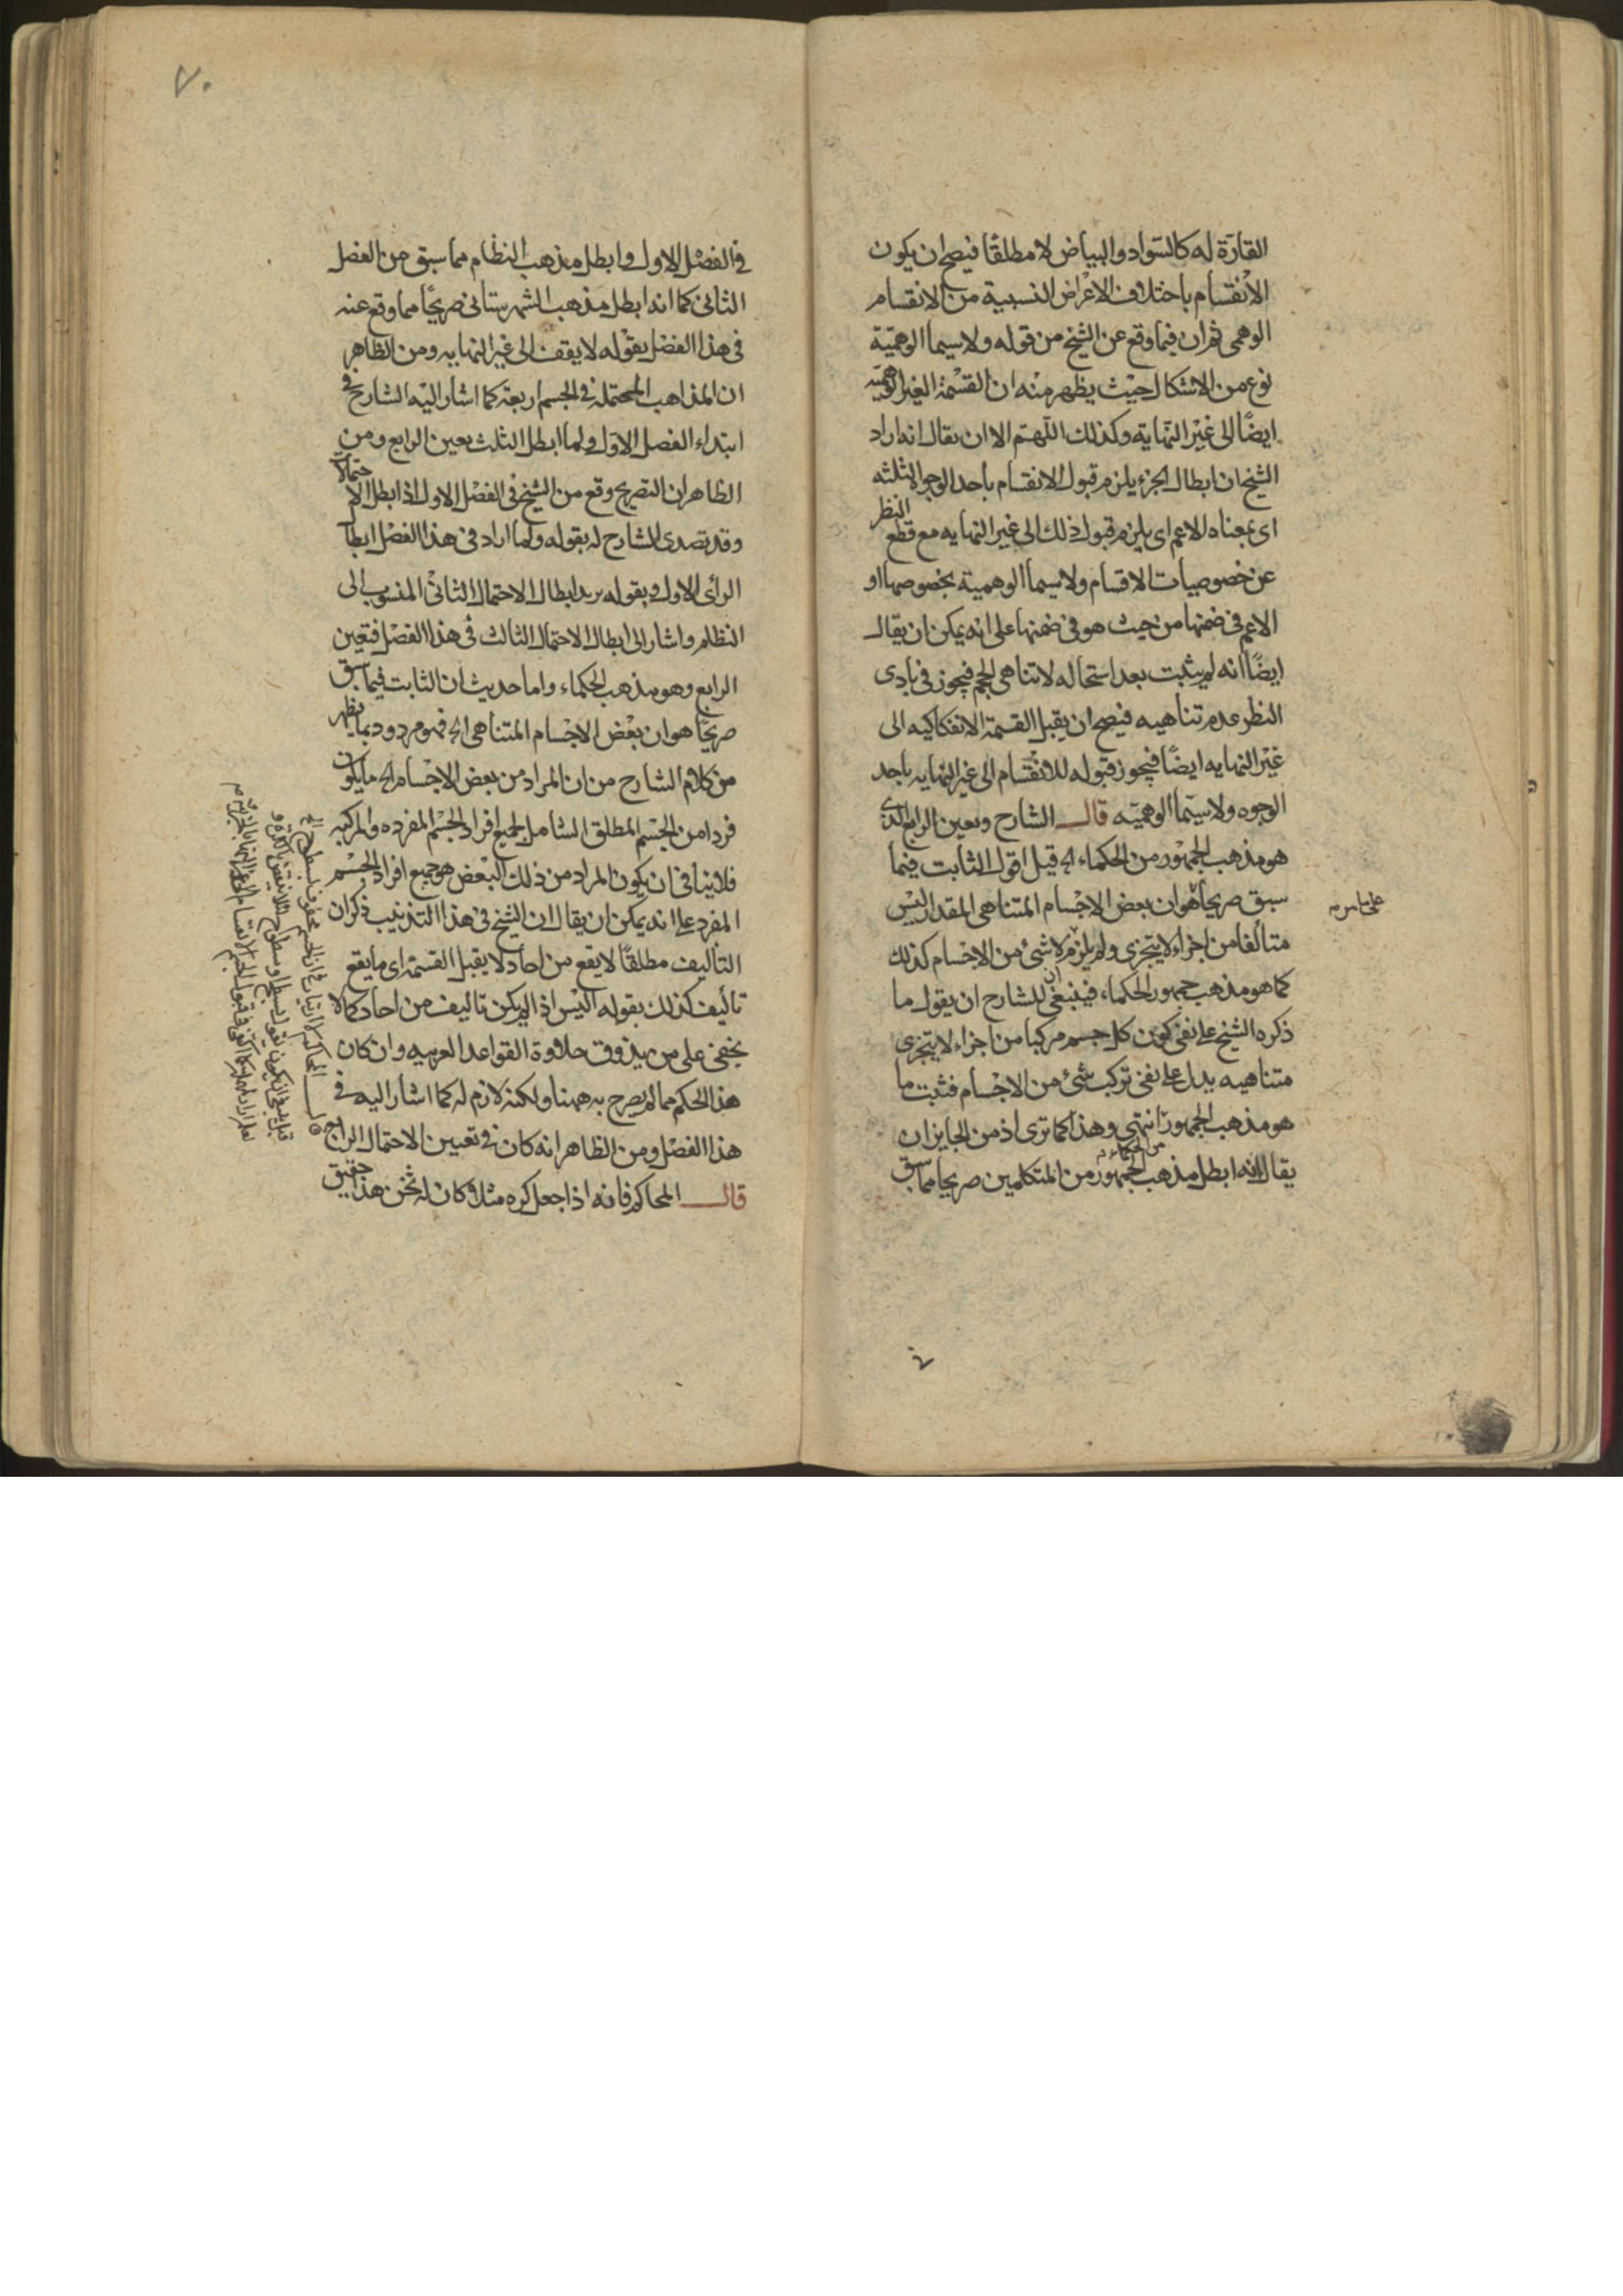 القارّة له كالسواد والبياض لا مطلقًا فيصح ان يكون
الانقسام باختلاف الاعراض النسبية من الانقسام
الوهمى ثم ان فيما وقع عن الشيخ من قوله ولاسيما الوهميّة
نوع من الاشكال حيث يظهر منه ان القسمة الغير الوهميّه
ايضًا الى غير النهاية وكذلك اللّهتم الا ان يقال انه اراد
الشيخ ان ابطال الجزء يلزم قبول الانقسام باحد الوجوه الثلثه
اى بمعناه الاعم اى يلزم قبول ذلك الى غير النهايه مع قطع النظر
عن خصوصيات الاقسام ولاسيما الوهمية بخصوصها او
الاعم فى ضمنها من حيث هو فى ضمنها على انه يمكن ان يقال
ايضًا انه لم يثبت بعد استحاله لا تناهى الحجم فيجوز فى بادى
النظر عدم تناهيه فيصح ان يقبل القسمة الانفكاكيه الى
غير النهايه ايضًا فيجوز قبوله للانقسام الى غير النهايه باحد
الوجوه ولاسيّما الوهميّه قال الشارح وتعين الرابع الذى
هو مذهب الجمهور من الحكماء اه قيل اقول الثابت فيما
سبق صريحا هو ان بعض الاجسام المتناهى المقدار ليس
متألفا من اجزاء لا يتجزى ولم يلزم لا شئ من الاجسام كذلك
كما هو مذهب جمهور الحكماء، فينبغى للشارح ان يقول ما
ذكره الشيخ على نفى كون كل جسم مركبا من اجزاء لا يتجزى
متناهيه يدل على نفى تركب شئ من الاجسام فثبت ما
هو مذهب الجمهور انتهى وهذا كما ترى اذ من الجايز ان
من الحكماء
يقال انه ابطل مذهب الجمهور من المتكلمين صريحا مما سبق
فى الفصل الاول وابطل مذهب النظام مما سبق من الفصل
الثانى كما انه ابطل مذهب الشهرستانى صريحًا مما وقع عنه
فى هذا الفصل بقوله لا يقف الى غير النهايه ومن الظاهر
ان المذاهب المحتمله فى الجسم اربعة كما اشار اليه الشارح فى
ابتداء الفصل الاول ولما ابطل الثلث بعين الرابع ومن
الظاهر ان التصريح وقع من الشيخ فى الفصل الاول اذ ابطل الاحتمالات
وقد تصدى الشارح له بقوله ولما اراد فى هذا الفصل ابطا
الرأى الاول وبقوله يريد ابطال الاحتمال الثانى المنسوب الى
النظام واشار الى ابطال الاحتمال الثالث فى هذا الفصل فتعين
الرابع وهو مذهب الحكماء واما حديث ان الثابت فيما سبق
صريحًا هو ان بعض الاجسام المتناهى اه فهو مردود بما يظهر
من كلام الشارح من ان المراد من بعض الاجسام اه ما يكون
فردا من الجسم المطلق الشامل لجميع افراد الجسم المفرده والمركبه
فلا ينافى ان يكون المراد من ذلك البعض هو جميع افراد الجسم
المفرد على انه يمكن ان يقال ان الشيخ فى هذا التذنيب ذكر ان
التاليف مطلقًا لا يقع من احاد لا يقبل القسمة اى ما يقع
تأليف كذلك بقوله اليس اذا لم يكن تاليف من احاد كما لا
يخفى على من يذوق حلاوة القواعد العربيه وان كان
هذا الحكم مما لم يصرح به ههنا ولكنه لازم له كما اشار اليه فى
هذا الفصل ومن الظاهر انه كان فى تعيين الاحتمال الرابع
قال المحاكم فانه اذا جعل كره مثلا وكان له ثخن هذا حقيق